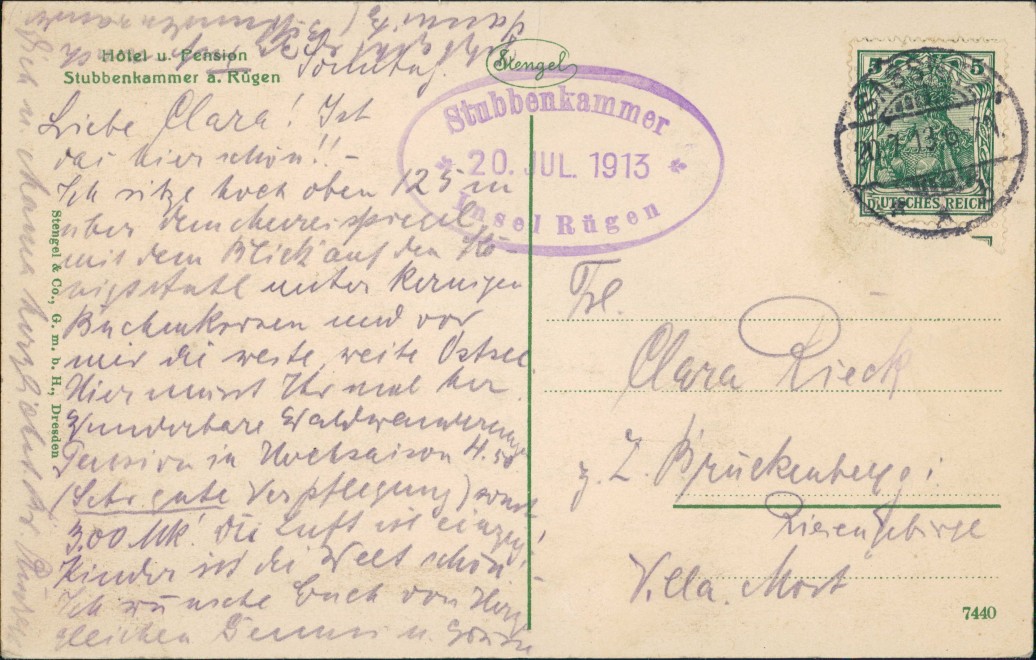 Hôtel u. Pension
Stubbenkammer a. Rügen
Stengel
Stubbenkammer
* 20. JUL. 1913 *
Insel Rügen
5 5
DEUTSCHES REICH
Stengel & Co., G. m. b. H., Dresden
Sonntag.
Liebe Clara! Ist
das hier schön!! -
Ich sitze hoch oben 125 m
über dem Meeresspiegel,
mit dem Blick auf den Kö
nigsstuhl unter kernigen
Buchenkronen und vor
mir die weite, weite Ostsee
Hier müsst Ihr mal her
Wunderbare Waldwanderungen
Pension in Hochsaison 4.50
(Sehr gute Verpflegung) sonst
3.00 Mk! Die Luft ist einzig!
Kinder ist die Welt schön!
Ich wünsche Euch von Herz
gleichen Genuss u.
Dich u. Mama herzl.
Frl.
Clara Rieck
z. Z. Brückenberg i
Riesengebirge
Villa Mort
7440